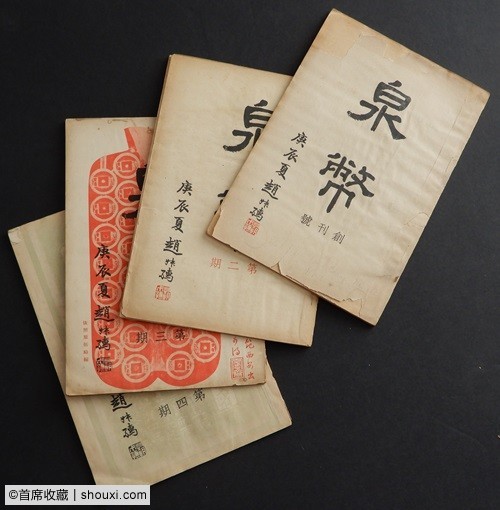 泉幣
創刊號
庚辰夏趙叔孺
泉
第二期
庚辰夏趙叔孺
第三期
庚辰夏趙叔孺
第四期
趙叔孺
©首席收藏 | shouxi.com